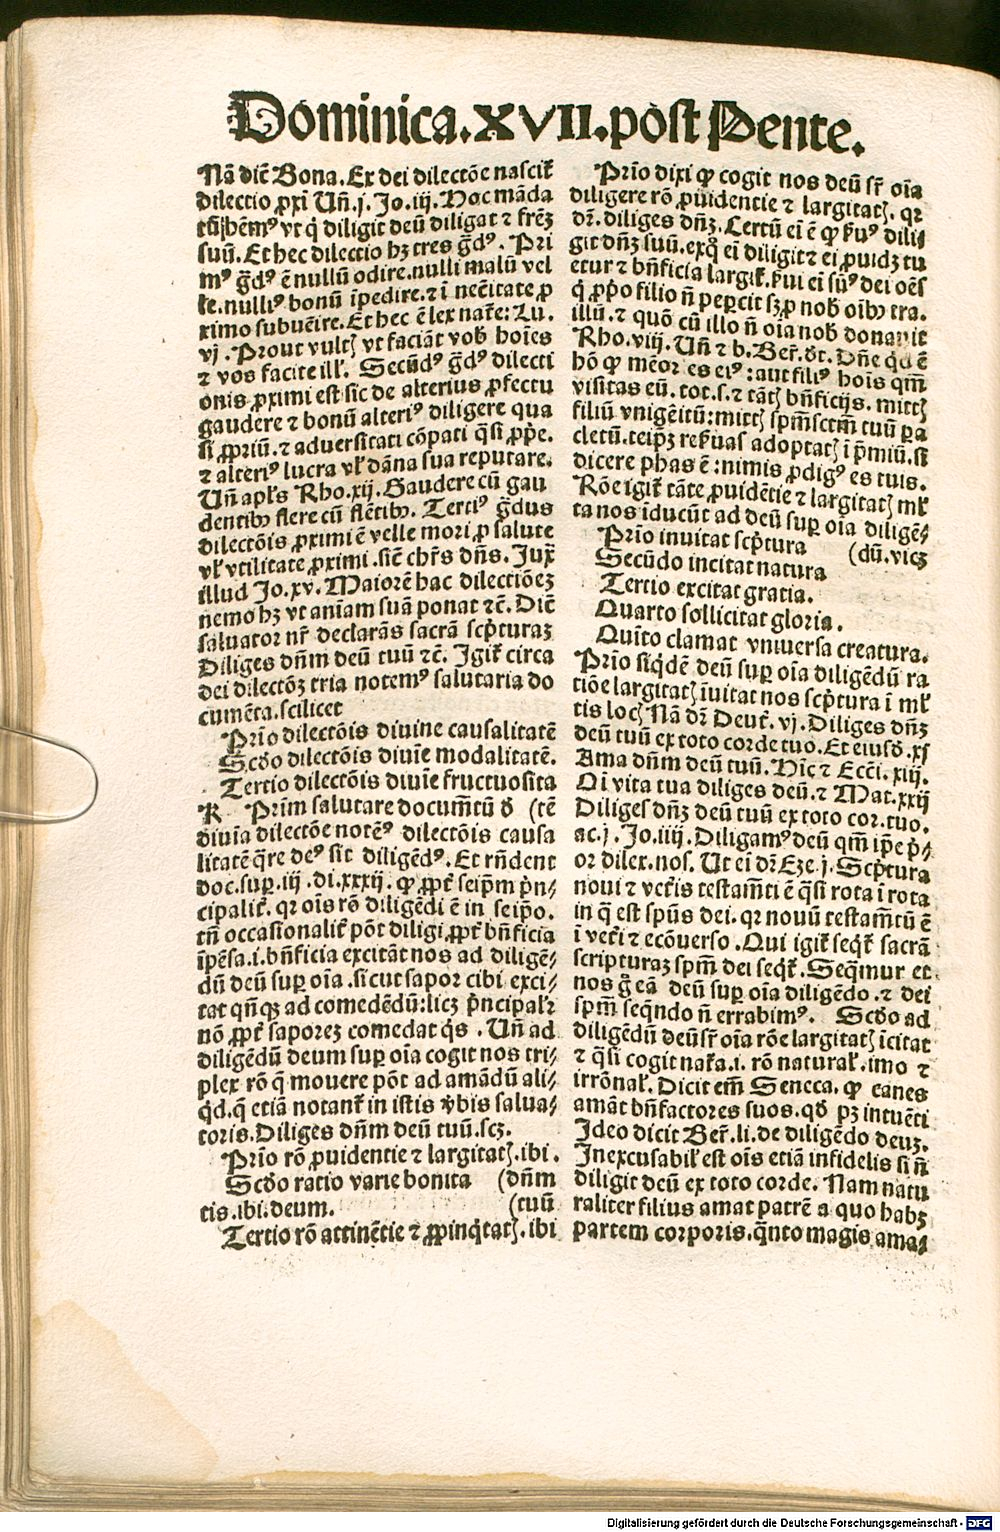 Dominica.XVII.post Pente.
Nã dicit̃ Bona. Ex dei dilectõe nascit̃
dilectio ꝓxi Uñ.j. Jo.iij. Hoc mãda
tũ hẽmꝰ vt q̇ diligit deũ diligat ⁊ fr̃eꝫ
suũ. Et hec dilectio hꝫ tres g̃dꝰ. Pri
mꝰ g̃dꝰ ẽ nullũ odire.nulli malũ vel
le.nulliꝰ bonũ ĩpedire.⁊ ĩ nec̃itate ꝓ
ximo subueĩre. Et hec ẽ lex nat̃e: Lu.
vj. Prout vultꝭ vt faciãt vob̃ hoĩes
⁊ vos facite ill'. Secũdꝰ g̃dꝰ dilecti
onis ꝓximi est sic de alterius ꝓfectu
gaudere ⁊ bonũ alteriꝰ diligere qua
si ꝓpriũ.⁊ aduersitati cõpati q̃si ꝓp̃e.
⁊ alteriꝰ lucra vl' dãna sua reputare.
Uñ apl's Rho.xij. Gaudere cũ gau
dentibꝰ flere cũ flẽtibꝰ. Tertiꝰ g̃dus
dilectõis ꝓximi ẽ velle mori ꝓ salute
vl' vtilitate ꝓximi.sic̃ chr̃s dñs. Jux̃
illud Jo.xv. Maiorẽ hac dilectiõeꝫ
nemo hꝫ vt anĩam suã ponat ⁊c̃. Dic̃
saluator nr̃ declarãs sacrã scp̃turaꝫ
Diliges dñm deũ tuũ ⁊c̃. Igit̃ circa
dei dilectõꝫ tria notemꝰ salutaria do
cumẽta.scilicet
Prĩo dilectõis diuine causalitatẽ
Scd̃o dilectõis diuĩe modalitatẽ.
Tertio dilectõis diuĩe fructuosita
R Prĩm salutare documẽtũ d̃ (tẽ
diuĩa dilectõe notẽꝰ dilectõis causa
litatẽ q̃re deꝰ sit diligẽdꝰ. Et rñdent
doc.suꝑ.iij.di.xxxij. ꝙ ꝓpt̃ seip̃m p̃n-
cipalit̃.qꝛ oĩs rõ diligẽdi ẽ in seip̃o.
tñ occasionalit̃ põt diligi ꝓpt̃ bñficia
ĩpẽsa.i.bñficia excitãt nos ad diligẽ-
dũ deũ suꝑ oĩa.sicut sapor cibi exci-
tat qñqꝫ ad comedẽdũ:licꝫ p̃ncipal'r
nõ ꝓpt̃ saporeꝫ comedat q̇s. Uñ ad
diligẽdũ deum suꝑ oĩa cogit nos tri-
plex rõ q̃ mouere põt ad amãdũ ali-
q̇d.q̃ etiã notant̃ in istis v̾bis salua-
toris. Diliges dñm deũ tuũ.scꝫ.
Prĩo rõ ꝓuidentie ⁊ largitatꝭ.ibi.
Scd̃o ratio varie bonita (dñm
tis.ibi.deum. (tuũ
Tertio rõ attinẽtie ⁊ ꝓpinq̇tatꝭ.ibi
Prĩo dixi ꝙ cogit nos deũ sr̃ oĩa
diligere rõ ꝓuidentie ⁊ largitatꝭ.qꝛ
dr̃.diliges dñꝫ. Certũ ei ẽ ꝙ ẜuꝰ dili
git dñꝫ suũ.exq̃ ei diligit ⁊ ei ꝓuidꝫ tu
etur ⁊ bñficia largit̃. ẜui ei sũꝰ dei oẽs
q̇ ꝓp̃o filio ñ peꝑcit sꝫ ꝓ nob̃ oĩbꝰ tra.
illũ.⁊ quõ cũ illo ñ oĩa nob̃ donauit
Rho.viij. Uñ ⁊ b. Ber̃.d̃t. Dñe q̇d ẽ
hõ ꝙ mẽor es eiꝰ: aut filiꝰ hoĩs qm̃
visitas eũ.tot.s.⁊ tãtꝭ bñficijs. mittꝭ
filiũ vnigẽitũ:mittꝭ spm̃sctm̃ tuũ ꝑa
cletũ.teipꝫ reẜuas adoptatꝭ ĩ p̃miũ.si
dicere phas ẽ: nimis ꝓdigꝰ es tuis.
Rõe igit̃ tãte ꝓuidẽtie ⁊ largitatꝭ ml'
ta nos ĩducũt ad deũ suꝑ oĩa diligẽ-
Prĩo inuitat scp̃tura (dũ.vicꝫ
Secũdo incitat natura
Tertio excitat gratia.
Quarto sollicitat gloria.
Quĩto clamat vniuersa creatura.
Prĩo siq̇dẽ deũ suꝑ oĩa diligẽdũ ra
tiõe largitatꝭ ĩuitat nos scp̃tura ĩ ml'
tis locꝭ Nã dr̃ Deut̃.vj. Diliges dñꝫ
deũ tuũ ex toto corde tuo. Et eiusd̃.xj
Ama dñm deũ tuũ. Hic̃ ⁊ Ecc̃i.xiij.
Oĩ vita tua diliges deũ.⁊ Mat.xxij
Diliges dñꝫ deũ tuũ ex toto cor.tuo.
ac.j. Jo.iiij. Diligamꝰ deũ qm̃ ip̃e p̃-
or dilex.nos. Ut ei dr̃ Eze.j. Scp̃tura
noui ⁊ vet̃is testam̃ti ẽ q̃si rota ĩ rota
in q̃ est spũs dei.qꝛ nouũ testam̃tũ ẽ
ĩ vet̃i ⁊ ecõuerso. Qui igit̃ seqt̃ sacrã
scripturaꝫ spm̃ dei seqt̃. Seq̃mur et
nos g̃ eã deũ suꝑ oĩa diligẽdo.⁊ dei
spm̃ seq̃ndo ñ errabimꝰ. Scd̃o ad
diligẽdũ deũ sr̃ oĩa rõe largitatꝭ ĩcitat
⁊ q̃si cogit nat̃a.i. rõ natural'.imo ⁊
irrõnal'. Dicit em̃ Seneca.ꝙ canes
amãt bñfactores suos.qd̃ pꝫ intuẽti
Ideo dicit Ber̃.li.de diligẽdo deuꝫ.
Inexcusabil' est oĩs etiã infidelis si ñ
diligit deũ ex toto corde. Nam natu
raliter filius amat patrẽ a quo habꝫ
partem corporis.q̃nto magis ama-
Digitalisierung gefördert durch die Deutsche Forschungsgemeinschaft - DFG